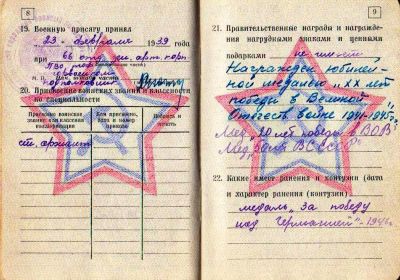 8
19. Военную присягу принял
23 " февраля 1939 года
при 66 отд. зен. арт.
ПВО
20. Присвоение воинских званий и классности
по специальности
Присвоено воинское звание или классная квалификация
Кем присвоено, дата и номер приказа
Подпись и печать
9
21. Правительственные награды и награждения нагрудными знаками и ценными
подарками не имеет
Награжден юбилей-
ной медалью „XX лет
победы в Великой
Отечеств. войне 1941-1945г."
Мед. 30 лет победы в ВОВ
Мед. ВС СССР
22. Какие имеет ранения и контузии (дата
и характер ранения (контузии)
медаль, за победу
над Германией"